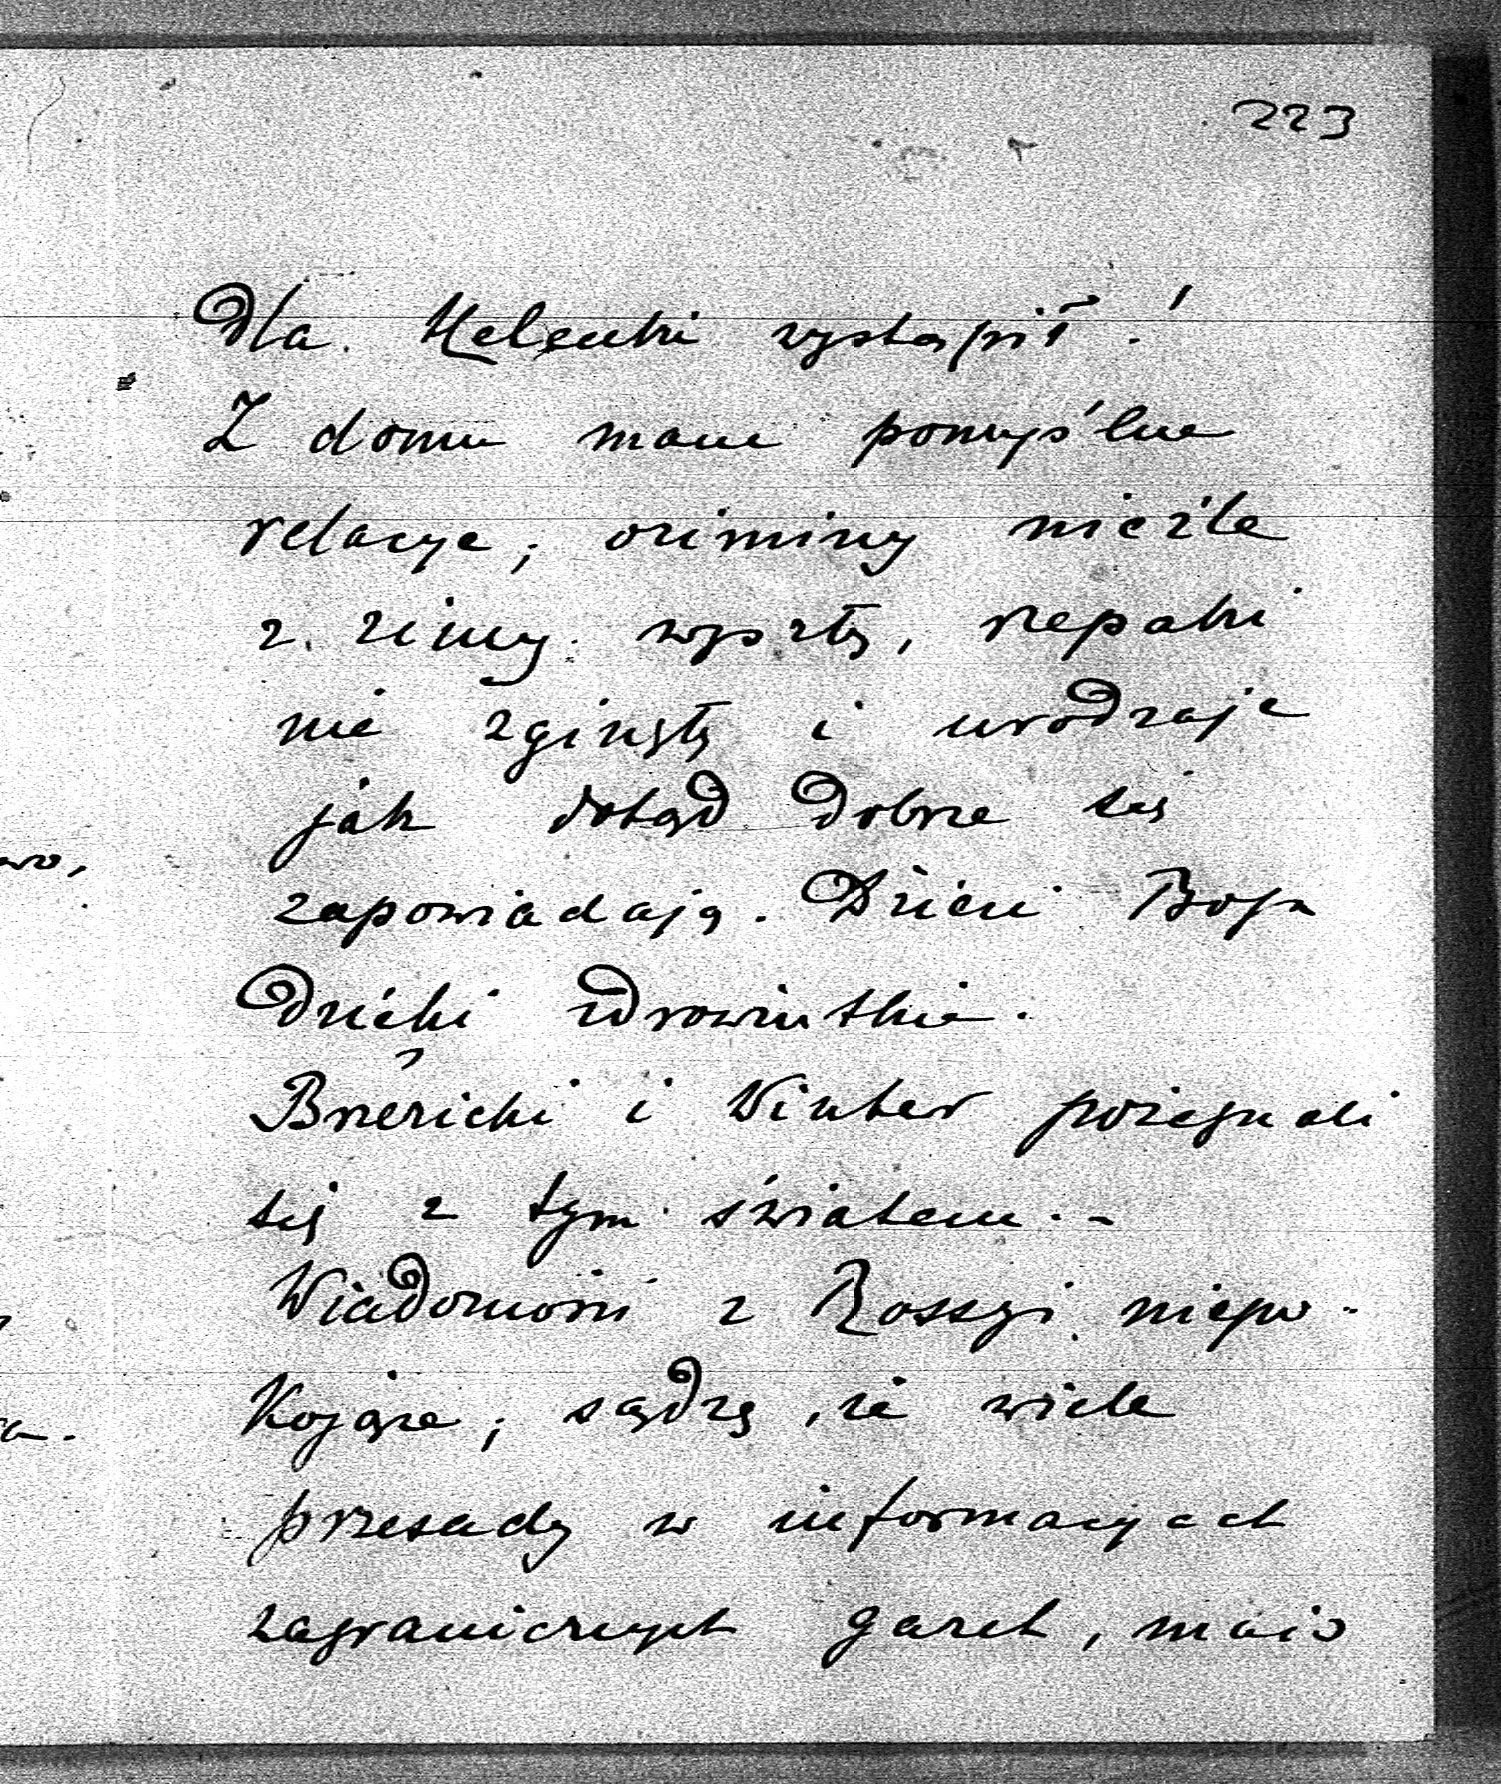 223
dla Helenki wystąpił!
Z domu mam pomyślne
relacye, oziminy nieźle
z zimy wyszły, rzepaki
nie zginęły i urodzaje
jak dotąd dobrze się
zapowiadają. Dzieci Bogu
dzięki zdrowiutkie.
Brzezicki i Winter pożegnali
się z tym światem. -
Wiadomości z Rossyi niepo-
kojące, sądzę, że wiele
przesady w informacyach
zagranicznych gazet, mais